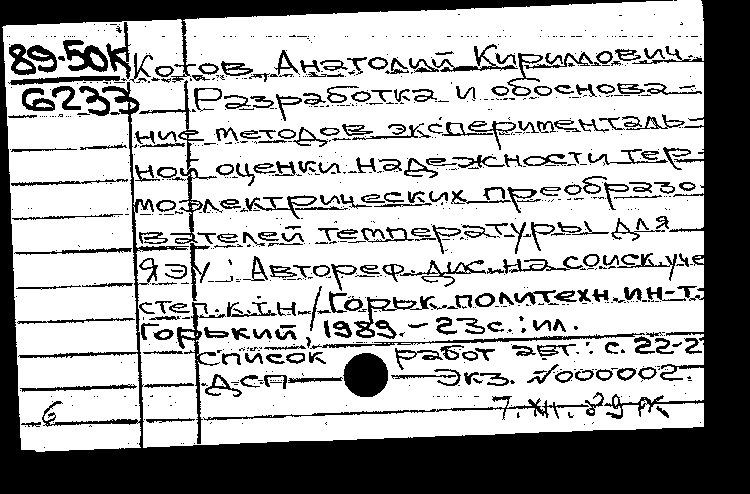 89-50К Котов, Анатолий Кириллович.
6233 Разработка и обоснова-
ние методов эксперименталь-
ной оценки надежности тер-
моэлектрических преобразо-
вателей температуры для
ЯЭУ : Автореф. дис. на соиск. уче
степ. к.т.н / Горьк. политехн. ин-т.-
Горький, 1989. - 23 с. : ил.
Список работ авт.: с. 22-2
ДСП Экз. №000002.
6 7. XII. 89